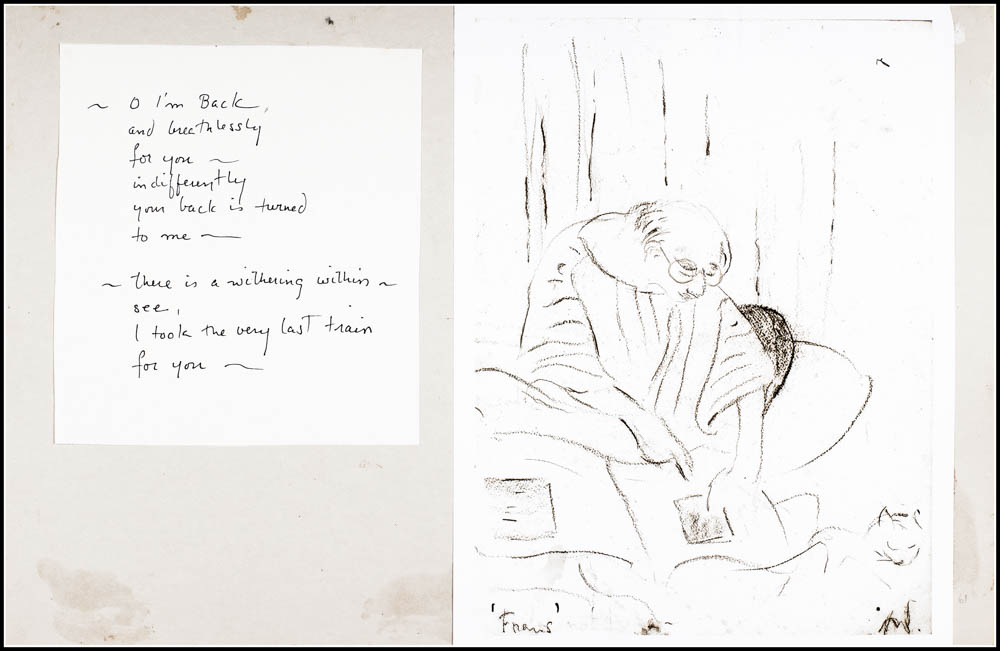 ~ O I'm Back,
and breathlessly
for you ~
indifferently
your back is turned
to me ~
~ there is a withering within ~
see,
I took the very last train
for you ~
'Frans'